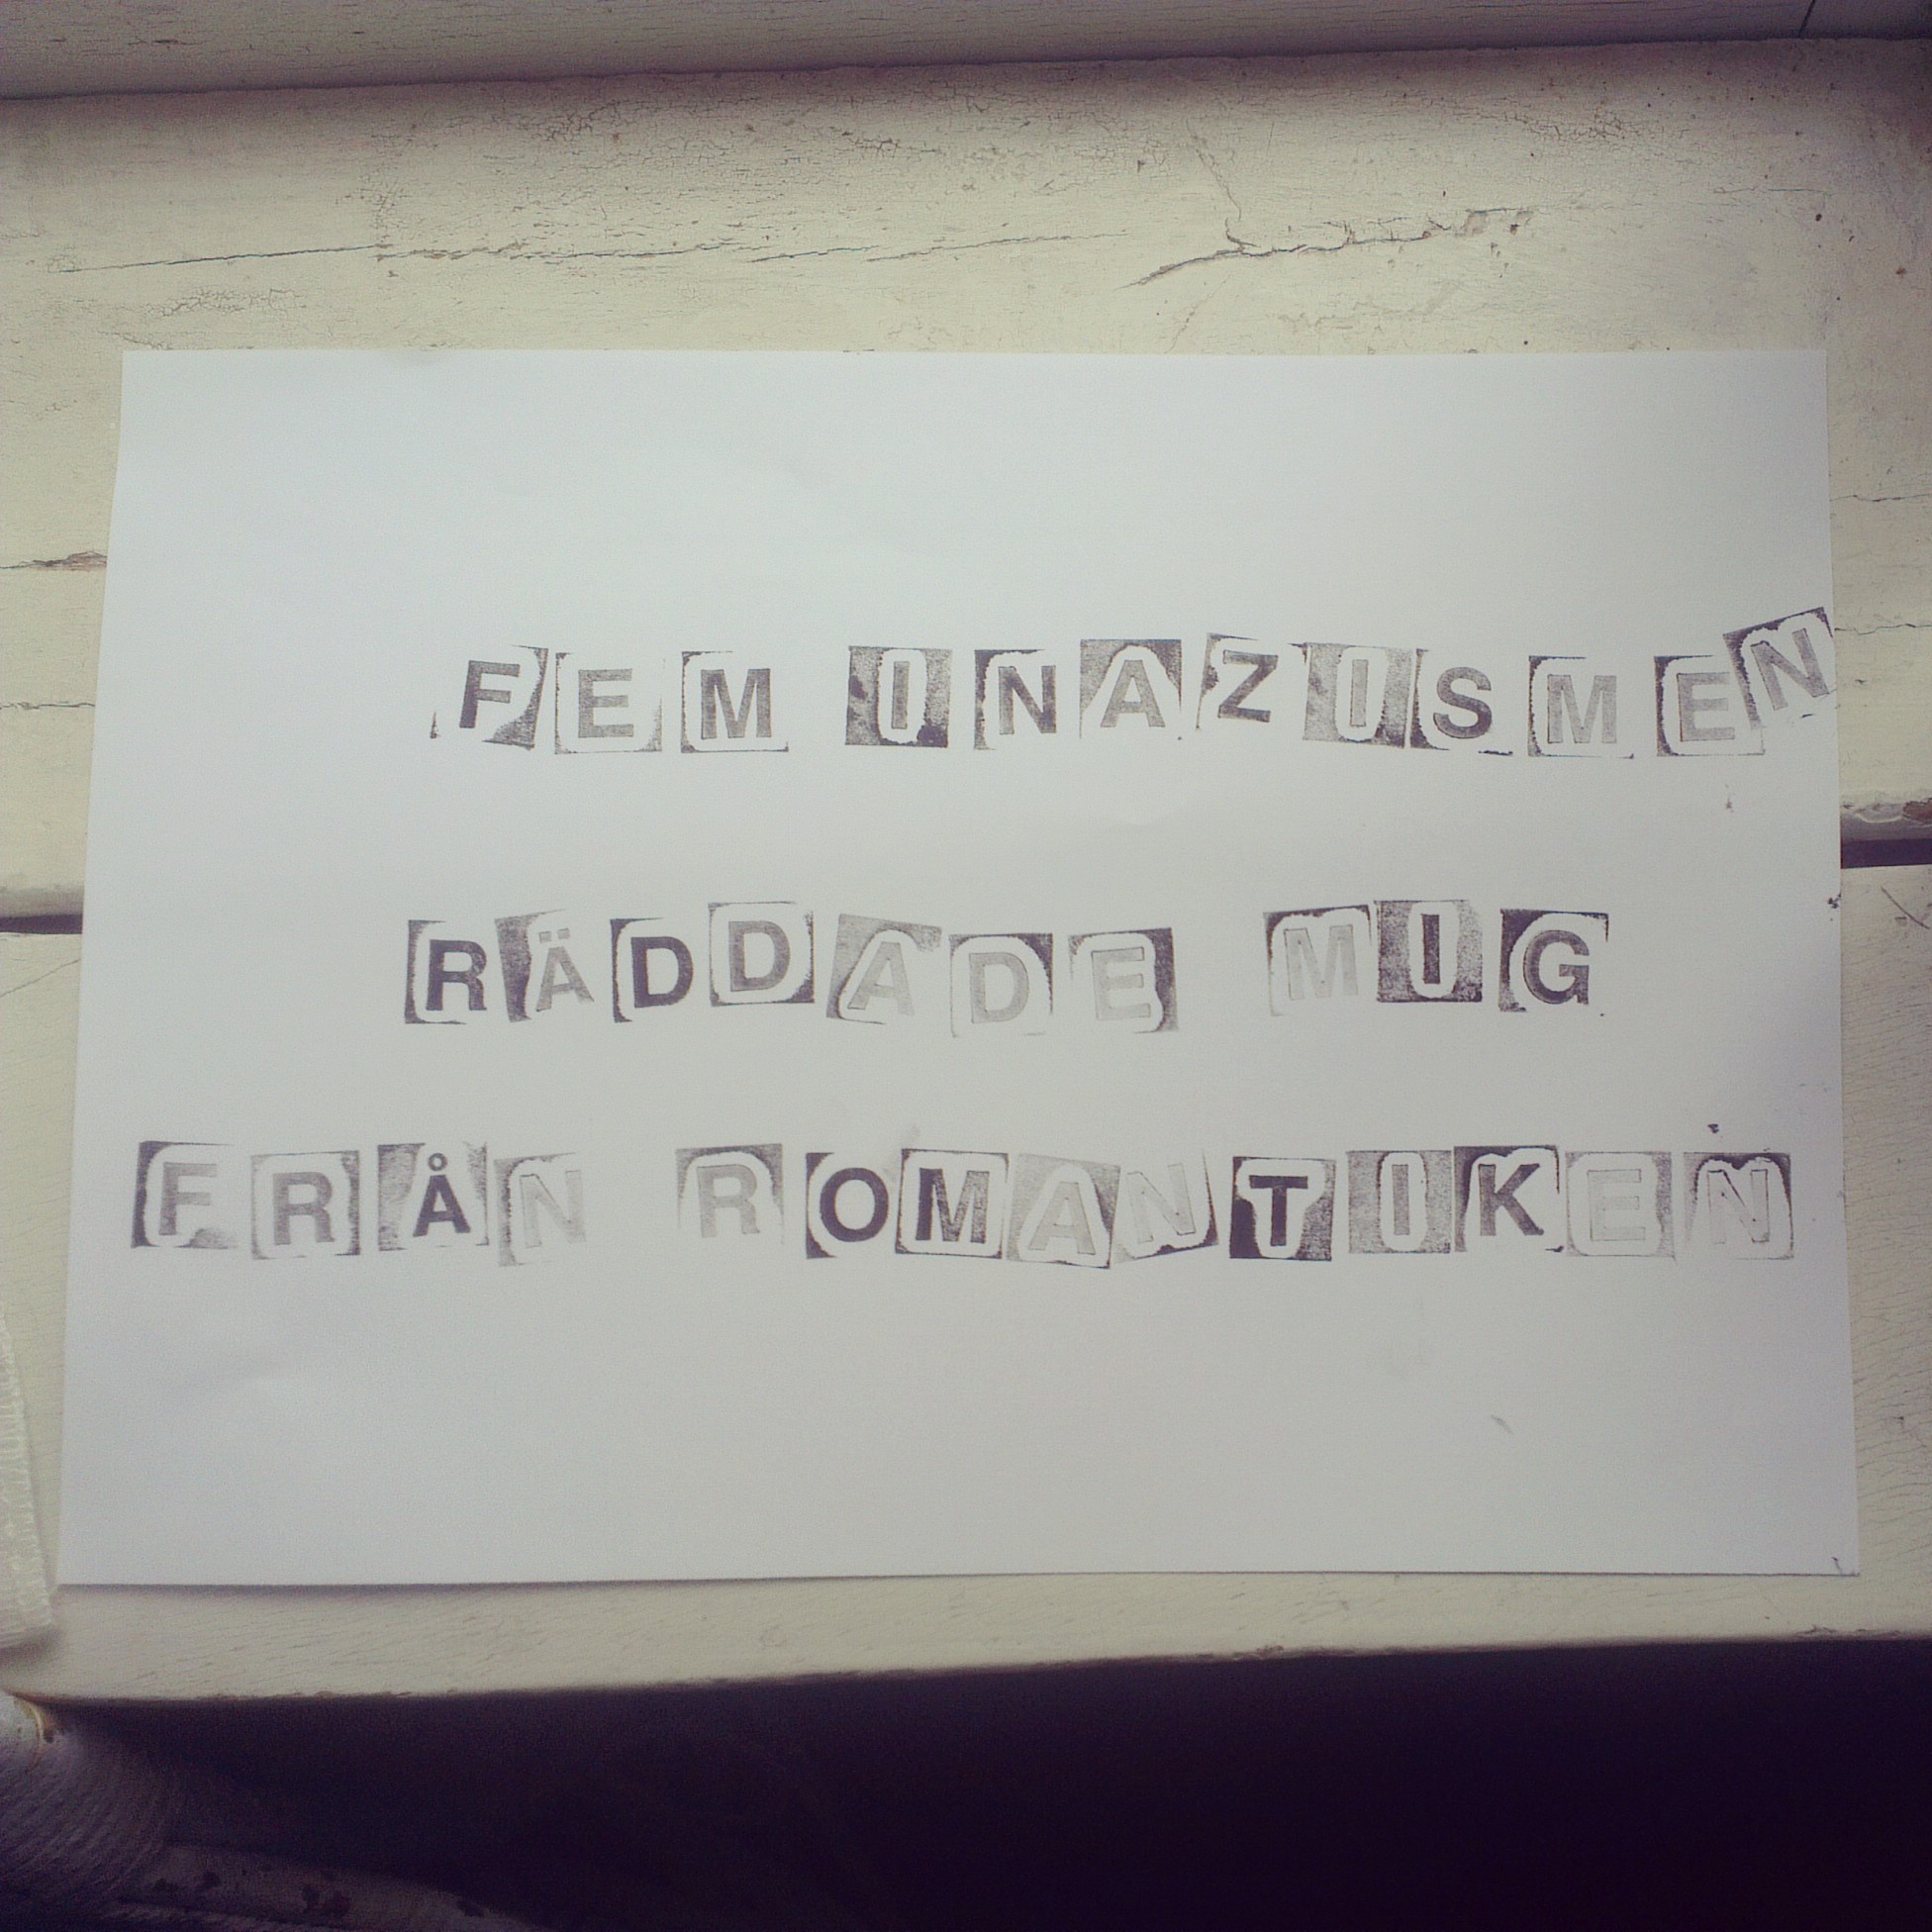 FEM INAZISMEN
RÄDDADE MIG
FRÅN ROMANTIKEN